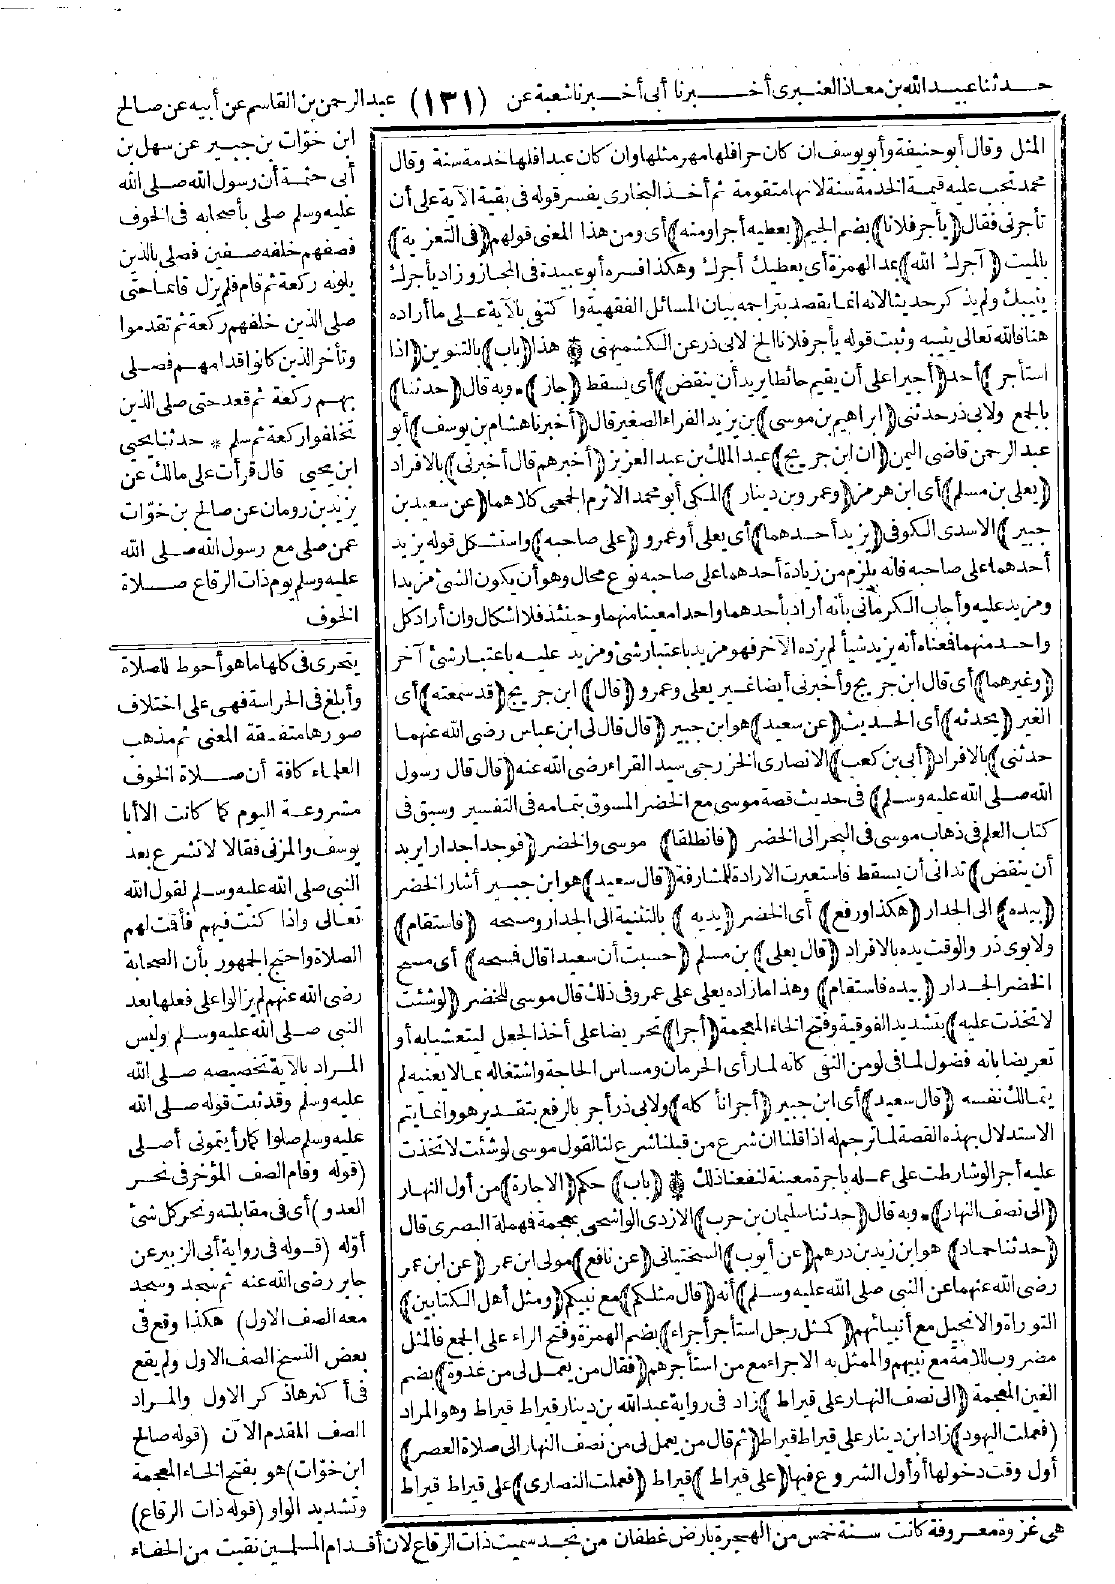 حدثنا عبيد الله بن معاذ العنبرى أخبرنا أبى أخبرنا شعبة عن (١٣١) عبد الرحمن بن القاسم عن أبيه عن صالح
ابن خوّات بن جبير عن سهل بن
أبى حثمة أن رسول الله صلى الله
عليه وسلم صلى بأصحابه فى الخوف
فصفهم خلفه صفين فصلى بالذين
يلونه ركعة ثم قام فلم يزل قائما حتى
صلى الذين خلفهم ركعة ثم تقدموا
وتأخر الذين كانوا قدامهم فصلى
بهم ركعة ثم قعد حتى صلى الذين
تخلفوا ركعة ثم سلم * حدثنا يحيى
ابن يحيى قال قرأت على مالك عن
يزيد بن رومان عن صالح بن خوّات
عمن صلى مع رسول الله صلى الله
عليه وسلم يوم ذات الرقاع صلاة
الخوف
يتحرى فى كلها ما هو أحوط للصلاة
وأبلغ فى الحراسة فهى على اختلاف
صورها متفقة المعنى ثم مذهب
العلماء كافة أن صلاة الخوف
مشروعة اليوم كما كانت الا أبا
يوسف والمزنى فقالا لا تشرع بعد
النبى صلى الله عليه وسلم لقول الله
تعالى واذا كنت فيهم فأقمت لهم
الصلاة واحتج الجمهور بأن الصحابة
رضى الله عنهم لم يزالوا على فعلها بعد
النبى صلى الله عليه وسلم وليس
المراد بالآية تخصيصه صلى الله
عليه وسلم وقد ثبت قوله صلى الله
عليه وسلم صلوا كما رأيتمونى أصلى
(قوله وقام الصف المؤخر فى نحر
العدو) أى فى مقابلته ونحر كل شئ
أوّله (قوله فى رواية أبى الزبير عن
جابر رضى الله عنه ثم سجد وسجد
معه الصف الاول) هكذا وقع فى
بعض النسخ الصف الاول ولم يقع
فى أكثرها ذكر الاول والمراد
الصف المقدم الآن (قوله صالح
ابن خوّات) هو بفتح الخاء المعجمة
وتشديد الواو (قوله ذات الرقاع)
المثل وقال أبو حنيفة وأبو يوسف ان كان حرا فلها مهر مثلها وان كان عبدا فلها خدمة سنة وقال
محمد تجب عليه قيمة الخدمة سنة لانها متقومة ثم أخذ البخارى يفسر قوله فى بقية الآية على أن
تأجرنى فقال (يأجر فلانا) بضم الجيم (يعطيه أجرا ومنه) أى ومن هذا المعنى قولهم (فى التعزية)
بالميت (آجرك الله) بمد الهمزة أى يعطيك أجرك وهكذا فسره أبو عبيدة فى المجاز وزاد يأجرك
يثيبك ولم يذكر حديثا لانه انما يقصد بتراجمه بيان المسائل الفقهية واكتفى بالآية على ما أراده
هنا فالله تعالى يثيبه وثبت قوله يأجر فلانا الخ لابى ذر عن الكشميهنى * هذا (باب) بالتنوين (اذا
استأجر) أحد (أجيرا على أن يقيم حائطا يريد أن ينقض) أى يسقط (جاز) * وبه قال (حدثنا)
بالجمع ولابى ذر حدثنى (ابراهيم بن موسى) بن يزيد الفراء الصغير قال (أخبرنا هشام بن يوسف) أبو
عبد الرحمن قاضى اليمن (ان ابن جريج) عبد الملك بن عبد العزيز (أخبرهم قال أخبرنى) بالافراد
(يعلى بن مسلم) أى ابن هرمز (وعمرو بن دينار) المكى أبو محمد الاثرم الجمحى كلاهما (عن سعيد بن
جبير) الاسدى الكوفى (يزيد أحدهما) أى يعلى أو عمرو (على صاحبه) واستشكل قوله يزيد
أحدهما على صاحبه فانه يلزم من زيادة أحدهما على صاحبه نوع محال وهو أن يكون الشئ مزيدا
ومزيد عليه وأجاب الكرمانى بأنه أراد بأحدهما واحدا معينا منهما وحينئذ فلا اشكال وان أراد كل
واحد منهما فمعناه أنه يزيد شيأ لم يزده الآخر فهو مزيد باعتبار شئ ومزيد عليه باعتبار شئ آخر
(وغيرهما) أى قال ابن جريج وأخبرنى أيضا غير يعلى وعمرو (قال) ابن جريج (قد سمعته) أى
الغير (يحدثه) أى الحديث (عن سعيد) هو ابن جبير (قال قال لى ابن عباس رضى الله عنهما
حدثنى) بالافراد (أبى بن كعب) الانصارى الخزرجى سيد القراء رضى الله عنه (قال قال رسول
الله صلى الله عليه وسلم) فى حديث قصة موسى مع الخضر المسوق بتمامه فى التفسير وسبق فى
كتاب العلم فى ذهاب موسى فى البحر الى الخضر (فانطلقا) موسى والخضر (فوجدا جدارا يريد
أن ينقض) تدانى أن يسقط فاستعيرت الارادة للمشارفة (قال سعيد) هو ابن جبير أشار الخضر
(بيده) الى الجدار (هكذا ورفع) أى الخضر (يديه) بالتثنية الى الجدار ومسحه (فاستقام)
ولابوى ذر والوقت يده بالافراد (قال يعلى) بن مسلم (حسبت أن سعيدا قال فمسحه) أى مسح
الخضر الجدار (بيده فاستقام) وهذا ما زاده يعلى على عمرو فى ذلك قال موسى للخضر (لو شئت
لاتخذت عليه) بتشديد الفوقية وفتح الخاء المعجمة (أجرا) تحريضا على أخذ الجعل ليتعشيا به أو
تعريضا بانه فضول لما فى لو من النفى كانه لما رأى الحرمان ومساس الحاجة واشتغاله بما لا يعنيه لم
يتمالك نفسه (قال سعيد) أى ابن جبير (أجرا نأكله) ولابى ذر أجر بالرفع بتقدير هو وانما يتم
الاستدلال بهذه القصة لما ترجم له اذا قلنا ان شرع من قبلنا شرع لنا لقول موسى لو شئت لاتخذت
عليه أجر الو شارطت على عمله باجرة معينة لنفعنا ذلك * (باب) حكم (الاجارة) من أول النهار
(الى نصف النهار) * وبه قال (حدثنا سليمان بن حرب) الازدى الواشحى بمعجمة فمهملة البصرى قال
(حدثنا حماد) هو ابن زيد بن درهم (عن أيوب) السختيانى (عن نافع) مولى ابن عمر (عن ابن عمر
رضى الله عنهما عن النبى صلى الله عليه وسلم) أنه (قال مثلكم) مع نبيكم (ومثل أهل الكتابين)
التوراة والانجيل مع أنبيائهم (كمثل رجل استأجر أجراء) بضم الهمزة وفتح الراء على الجمع فالمثل
مضروب للامة مع نبيهم والممثل به الاجراء مع من استأجرهم (فقال من يعمل لى من غدوة) بضم
الغين المعجمة (الى نصف النهار على قيراط) زاد فى رواية عبد الله بن دينار قيراط قيراط وهو المراد
(فعملت اليهود) زاد ابن دينار على قيراط قيراط (ثم قال من يعمل لى من نصف النهار الى صلاة العصر)
أول وقت دخولها أو أول الشروع فيها (على قيراط) قيراط (فعملت النصارى) على قيراط قيراط
هى غزوة معروفة كانت سنة خمس من الهجرة بارض غطفان من نجد سميت ذات الرقاع لان أقدام المسلمين نقبت من الحفاء